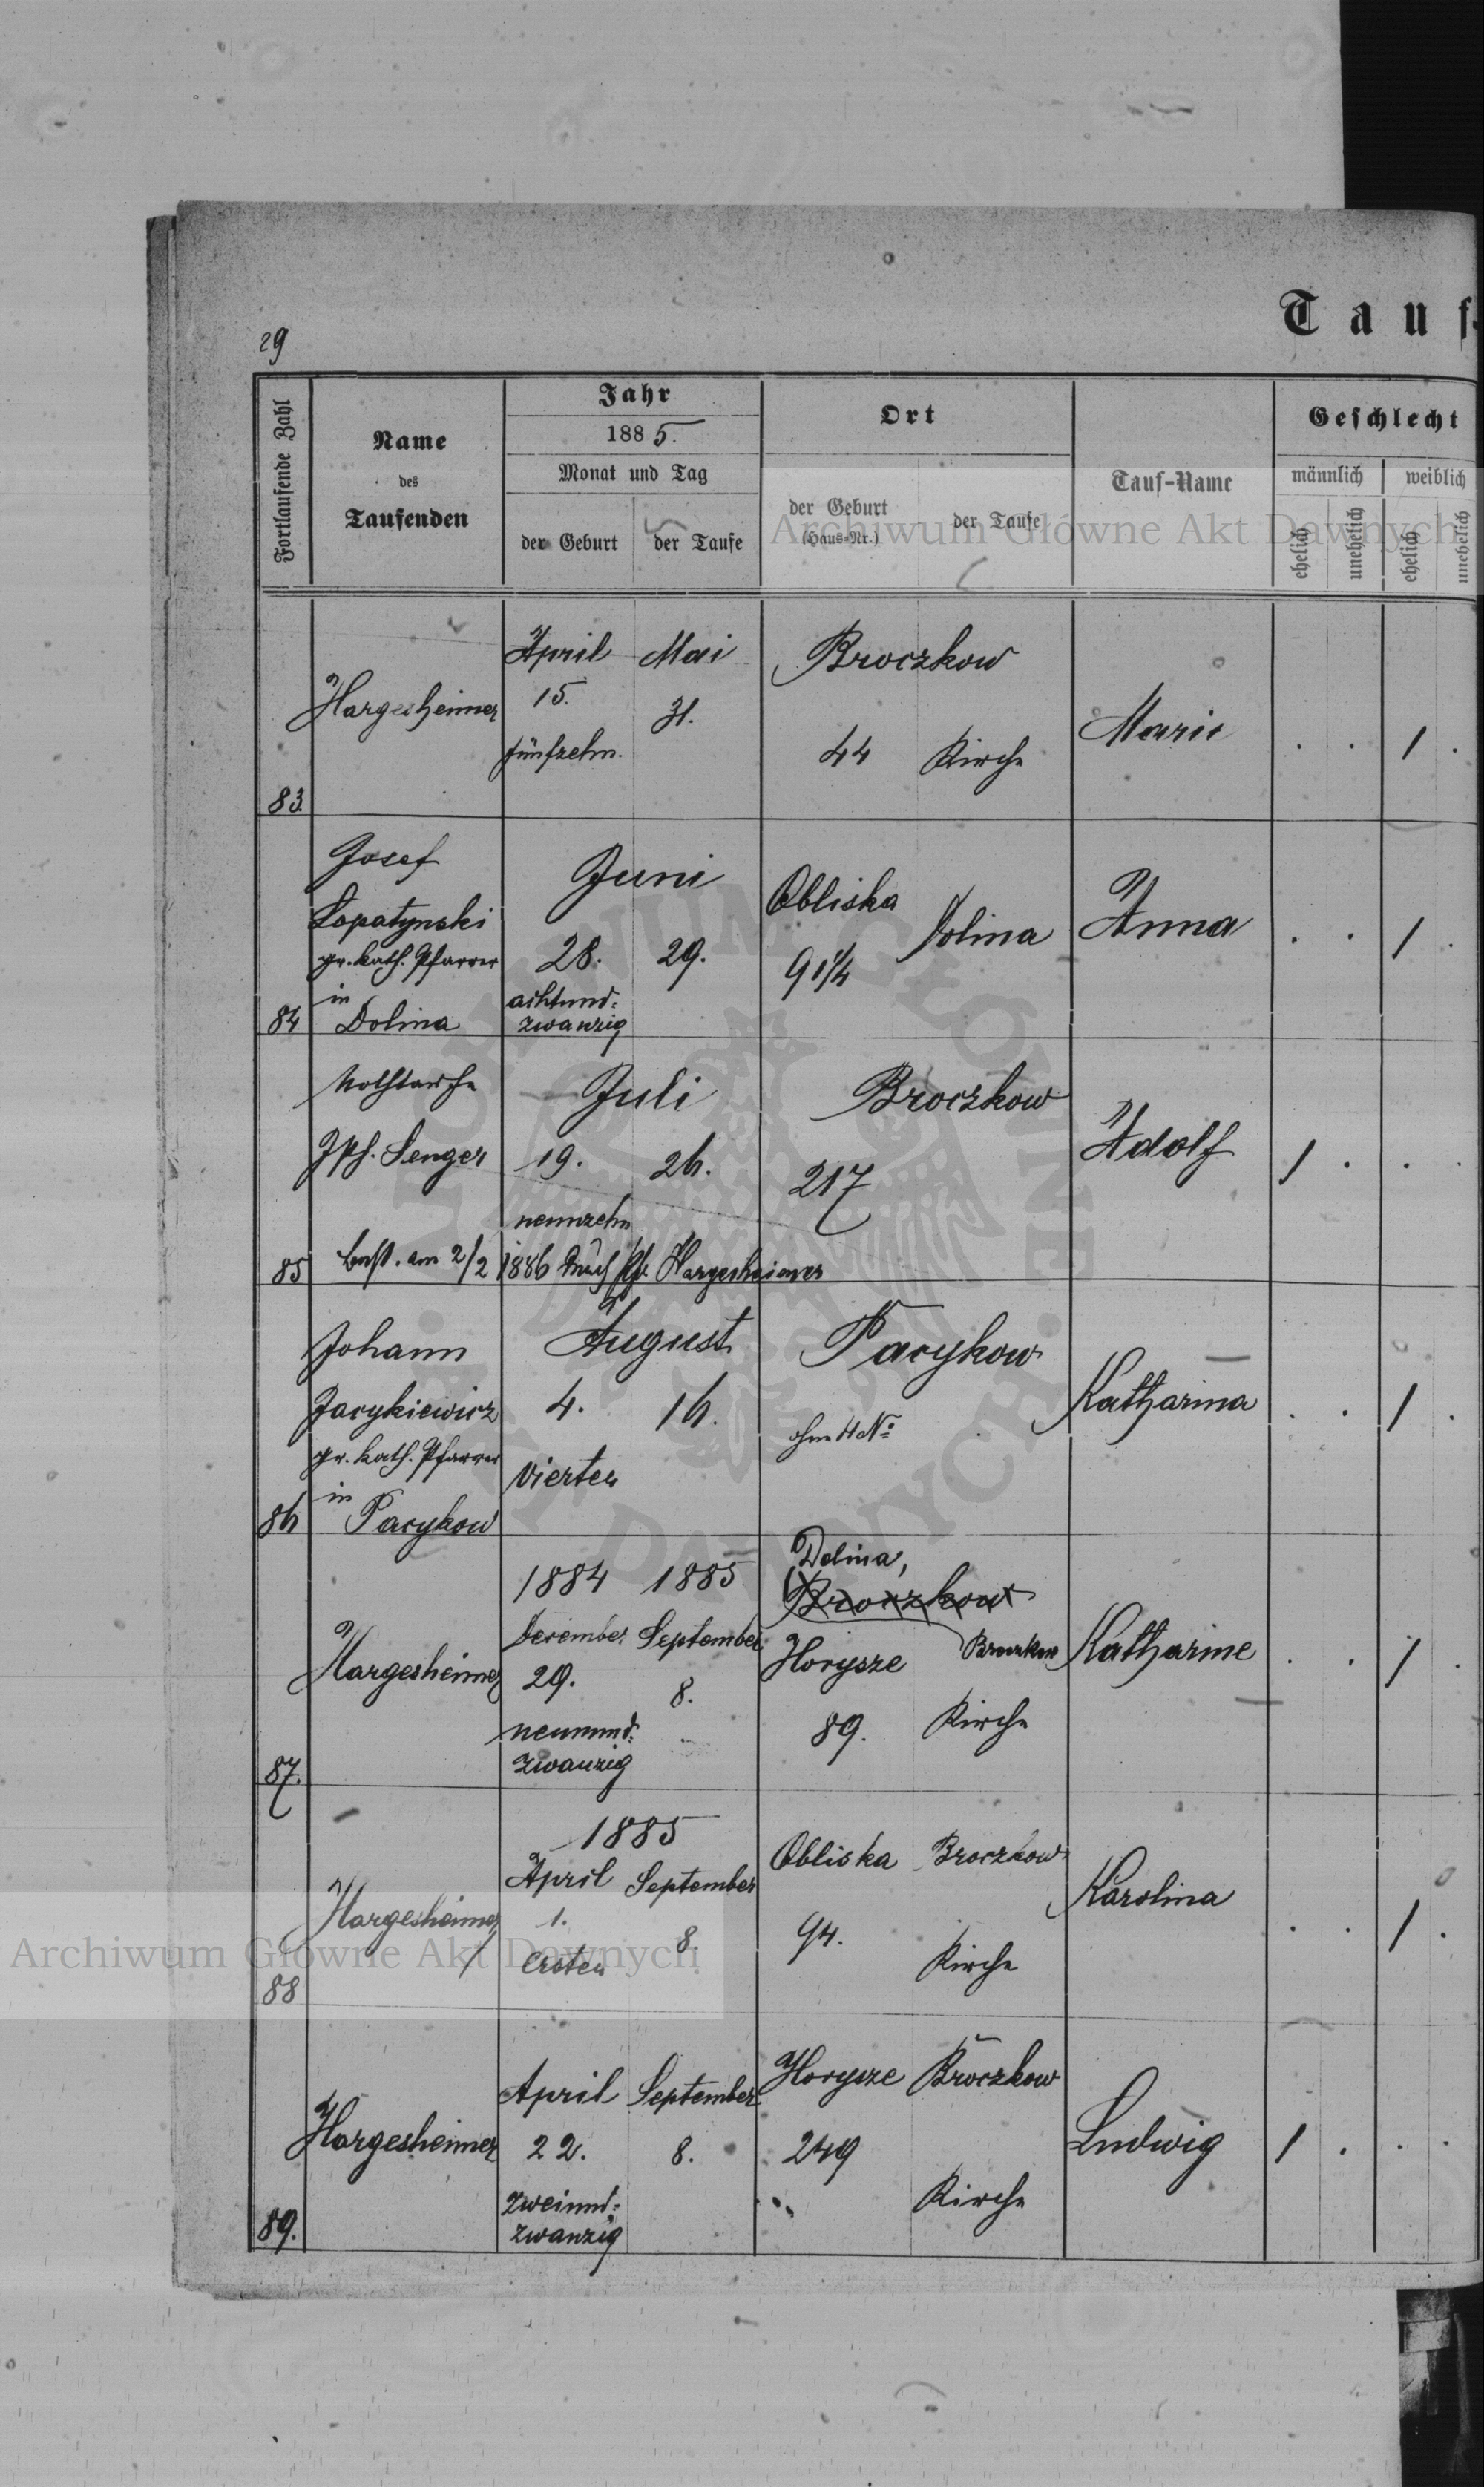 29
Tauf-
Fortlaufende Zahl
Name
des
Taufenden
Jahr
1885.
Monat und Tag
der Geburt
der Taufe
Ort
der Geburt
(Haus-Nr.)
der Taufe
Tauf-Name
Geschlecht
männlich
weiblich
ehelich
unehelich
ehelich
unehelich
Archiwum Główne Akt Dawnych
83.
Hargesheimer
April
15.
fünfzehn.
Mai
31.
Broczkow
44
Kirche
Marie
. . 1 .
84
Josef
Lopatynski
gr. kath. Pfarrer
in
Dolina
Juni
28.
29.
achtund-
zwanzig
Obliska
91¼
Dolina
Anna
. . 1 .
85
Nothtaufe
Jph. Senger
Juli
19.
26.
neunzehn
best. am 2/2 1886 durch Pfr. Hargesheimer
Broczkow
217
Adolf
1 . . .
86
Johann
Jacykiewicz
gr. kath. Pfarrer
in
Pacykow
August
4.
16.
vierten
Pacykow
ohne H No
Katharina
. . 1 .
87.
Hargesheimer
1884
1885
December
September
29.
8.
neunund-
zwanzig
Dolina,
Broczkow
Horysze
Broczkow
89.
Kirche
Katharine
. . 1 .
88
Hargesheimer
1885
April
September
1.
8.
ersten
Obliska
Broczkow
94.
Kirche
Karolina
. . 1 .
Archiwum Główne Akt Dawnych
89.
Hargesheimer
April
September
22.
8.
zweiund-
zwanzig
Horysze
Broczkow
249
Kirche
Ludwig
1 . . .
ARCHIWUM GŁÓWNE AKT DAWNYCH